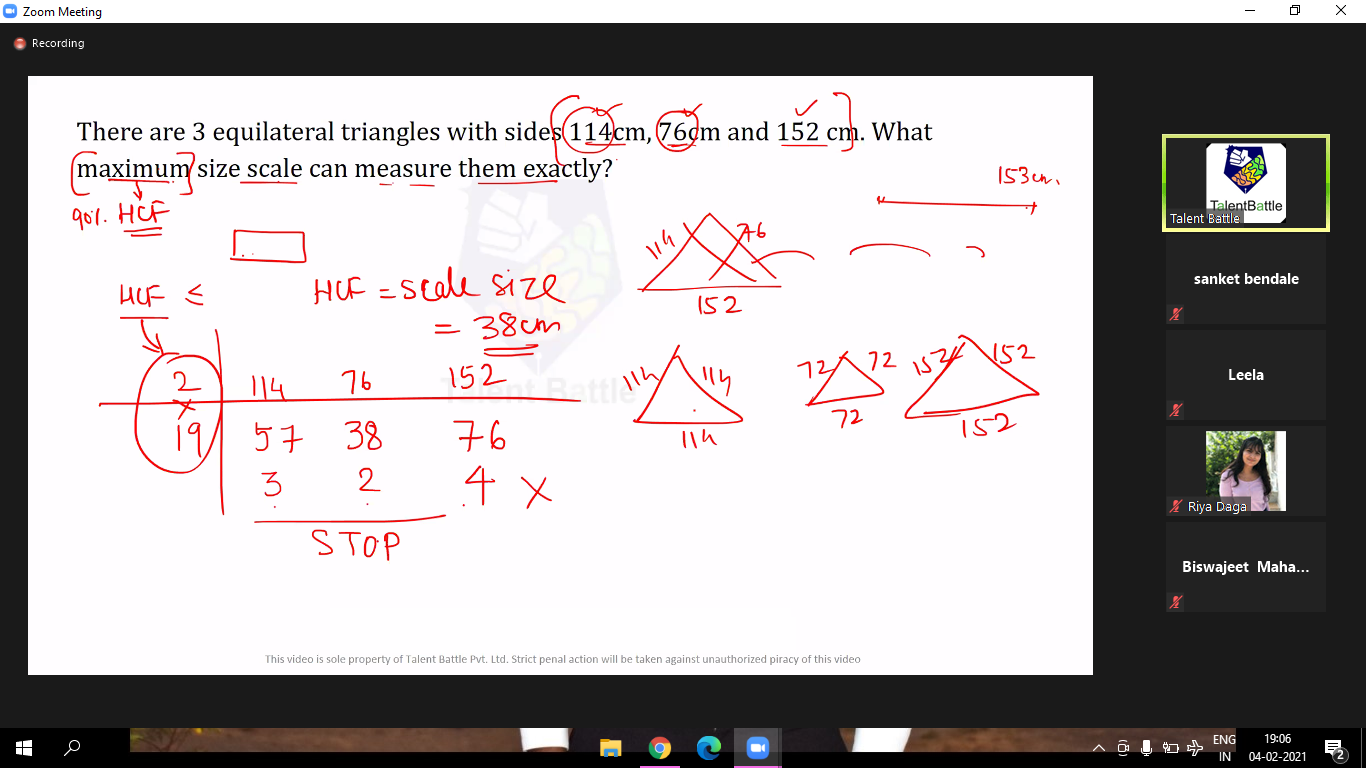 Zoom Meeting
Recording
There are 3 equilateral triangles with sides 114cm, 76cm and 152 cm. What
maximum size scale can measure them exactly?
153cm.
90%. HCF
114 76
152
HCF ≤
HCF = scale size
= 38cm
2 114 76 152
×
19 57 38 76
3 2 4 ×
STOP
114 114
114
72 72
72
152 152
152
Talent Battle
This video is sole property of Talent Battle Pvt. Ltd. Strict penal action will be taken against unauthorized piracy of this video
TalentBattle
Talent Battle
sanket bendale
Leela
Riya Daga
Biswajeet Maha...
ENG
IN
19:06
04-02-2021
2